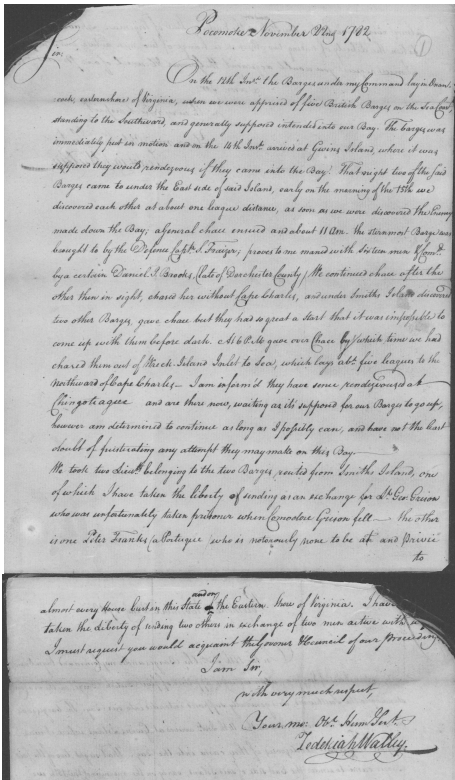 Pocomoke November 22nd 1782
①
Sir,
On the 12th Inst. the Barges under my Command lay in Onan-
cock, eastern shore of Virginia, when we were apprised of five British Barges on the Sea Coast,
standing to the Southward, and generally supposed intended into our Bay. The barges was
immediately put in motion and on the 14th Inst. arrived at Gwins Island, where it was
supposed they would rendezvous if they came into the Bay. That night two of the said
Barges came to under the East side of said Island, early on the morning of the 15th we
discovered each other at about one league distance, as soon as we were discovered the Enemy
made down the Bay; a general chace ensued and about 11 Am. the sternmost Barge was
brought to by the Defence Capt. S. Frazier; proves to me maned with sixteen men & Com'd.
by a certain Daniel J. Brooks, (late of Dorchester County) We continued chace after the
other then in sight, chased her without Cape Charles, and under Smiths Island discovered
two other Barges, gave chace but they had so great a start that it was impossible to
come up with them before dusk. At 6 P.M. gave over Chace by which time we had
chased them out of Wreck Island Inlet to Sea, which lays abt. five leagues to the
Northward of Cape Charles— I am inform'd they have some rendezvoused at
Chingoteague and are there now, waiting as it's supposed for our Barges to go up,
however am determined to continue as long as I possibly can, and have not the least
doubt of frusterating any attempt they may make on this Bay.
We took two Lieuts. belonging to the two Barges routed from Smiths Island, one
of which I have taken the liberty of sending as an exchange for Lt. Geo: Grason
who was unfortunately taken prisoner when Comodore Grason fell— the other
is one Peter Franks (a Portugee) who is notoriously none to be at and Privie
to
almost every House burt in this State and on the Eastern Shore of Virginia. I have
taken the Liberty of sending two others in exchange of two men active with
I must request you would acquaint the Govonor & Council of our Proceeding
I am Sir,
with very much respect,
Your mo: Obt. Hum Sert.
Zedekiah Walley.